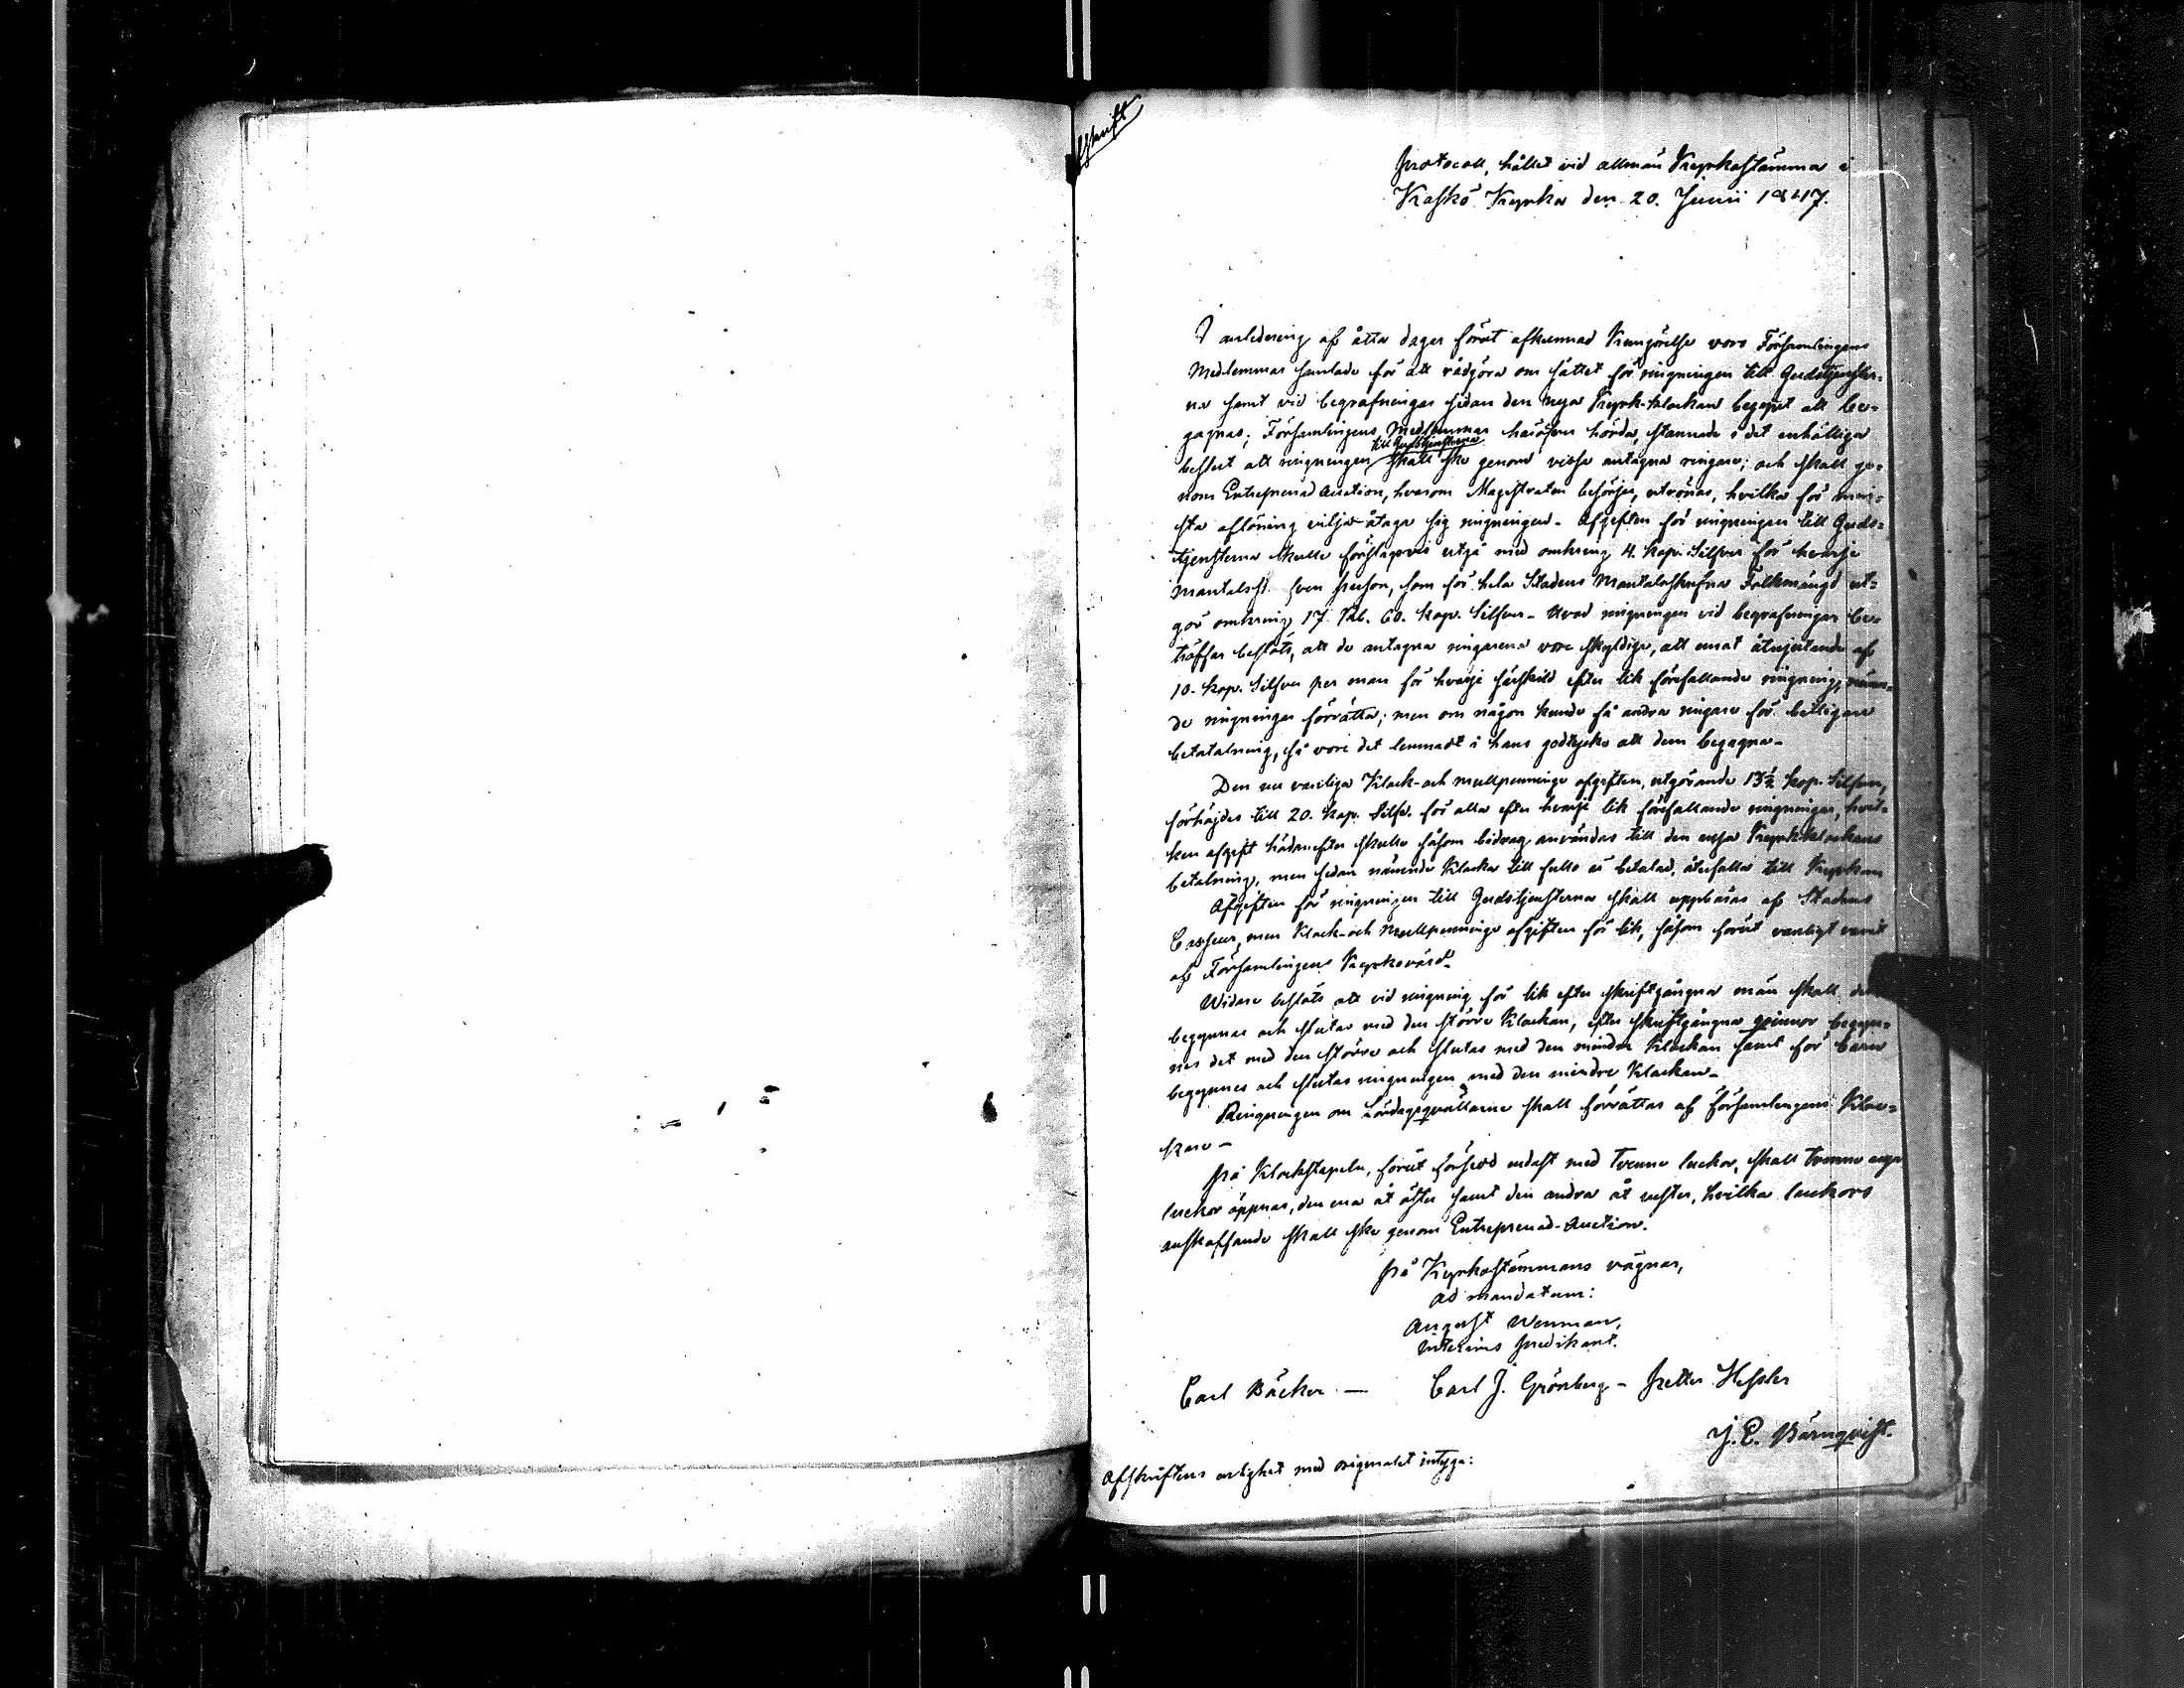 fskrift
Protocoll, hållet vid allmän Kyrkostämma i
Kaskö Kyrka den 20. Junii 1847.
I anledning af åtta dagar förut afkunnad Kungörelse voro Församlingens
Medlemmar samlade för att rådgöra om sättet för ringningen till Gudstjenster-
na samt vid begrafningar sedan den nya Kyrk-klockan begynt att be-
gagnas; Församlingens Medlemmar häröfver hörda, stannade i det enhälliga
till Gudstjensterna
beslut att ringningen skall ske genom vissa antagna ringare; och skall ge-
nom Entreprenad Auction, hvarom Magistraten besörjer, utrönas, hvilka för min-
sta aflöning vilja åtaga sig ringningen. Afgiften för ringningen till Guds-
tjensterna skulle förslagsvis utgå med omkring 4. kop. Silfver för hvarje
mantalsskrifven person, som för hela Stadens Mantalsskrifna Folkmängd ut-
gör omkring 17. Rub. 60. kop. Silfver. Hvad ringningen vid begrafningar be-
träffar beslöts, att de antagna ringarena vore skyldige, att emot åtnjutande af
10. kop. Silfver per man för hvarje särskild efter lik förefallande ringning, nämn-
de ringningar förrätta; men om någon kunde få andra ringare för billigare
betatalning, så vore det lemnadt i hans godtycke att dem begagna.
Den nu vanliga Klock- och mullpennings afgiften, utgörande 13½ kop. Silfver,
förhöjdes till 20. kop. Silfv. för alla efter hvarje lik förefallande ringningar, hvil-
ken afgift hädanefter skulle såsom bidrag användas till den nya Kyrkklockans
betalning, men sedan nämnde Klocka till fullo är betalad, återfalla till Kyrkan
Afgiften för ringningen till Gudstjensterna skall uppbäras af Stadens
Casseur, men Klock- och Mullpennings afgiften för lik, såsom förut vanligt varit
af Församlingens Kyrkovärd.
Widare beslöts att vid ringning för lik efter skriftgångna män skall det
begynnas och slutas med den större Klockan, efter skriftgångna qvinnor begyn-
nes det med den större och slutas med den mindre Klockan samt för barn
begynnes och slutas ringningen med den mindre Klockan.
Ringningen om Lördagsqvällarne skall förrättas af Församlingens Kloc-
kare.
På Klockstapeln, förut försedd endast med tvenne luckor, skall tvenne nya
luckor öppnas, den ena åt öster samt den andra åt vester, hvilka luckors
anskaffande skall ske genom Entreprenad-Auction.
På Kyrkostämmans vägnar,
ad mandatum:
August Wenman,
interims Predikant.
Carl Bäcker — Carl J. Grönberg - Petter Hessler
J. E. Bärnqvist.
Afskriftens enlighet med originalet intyga: